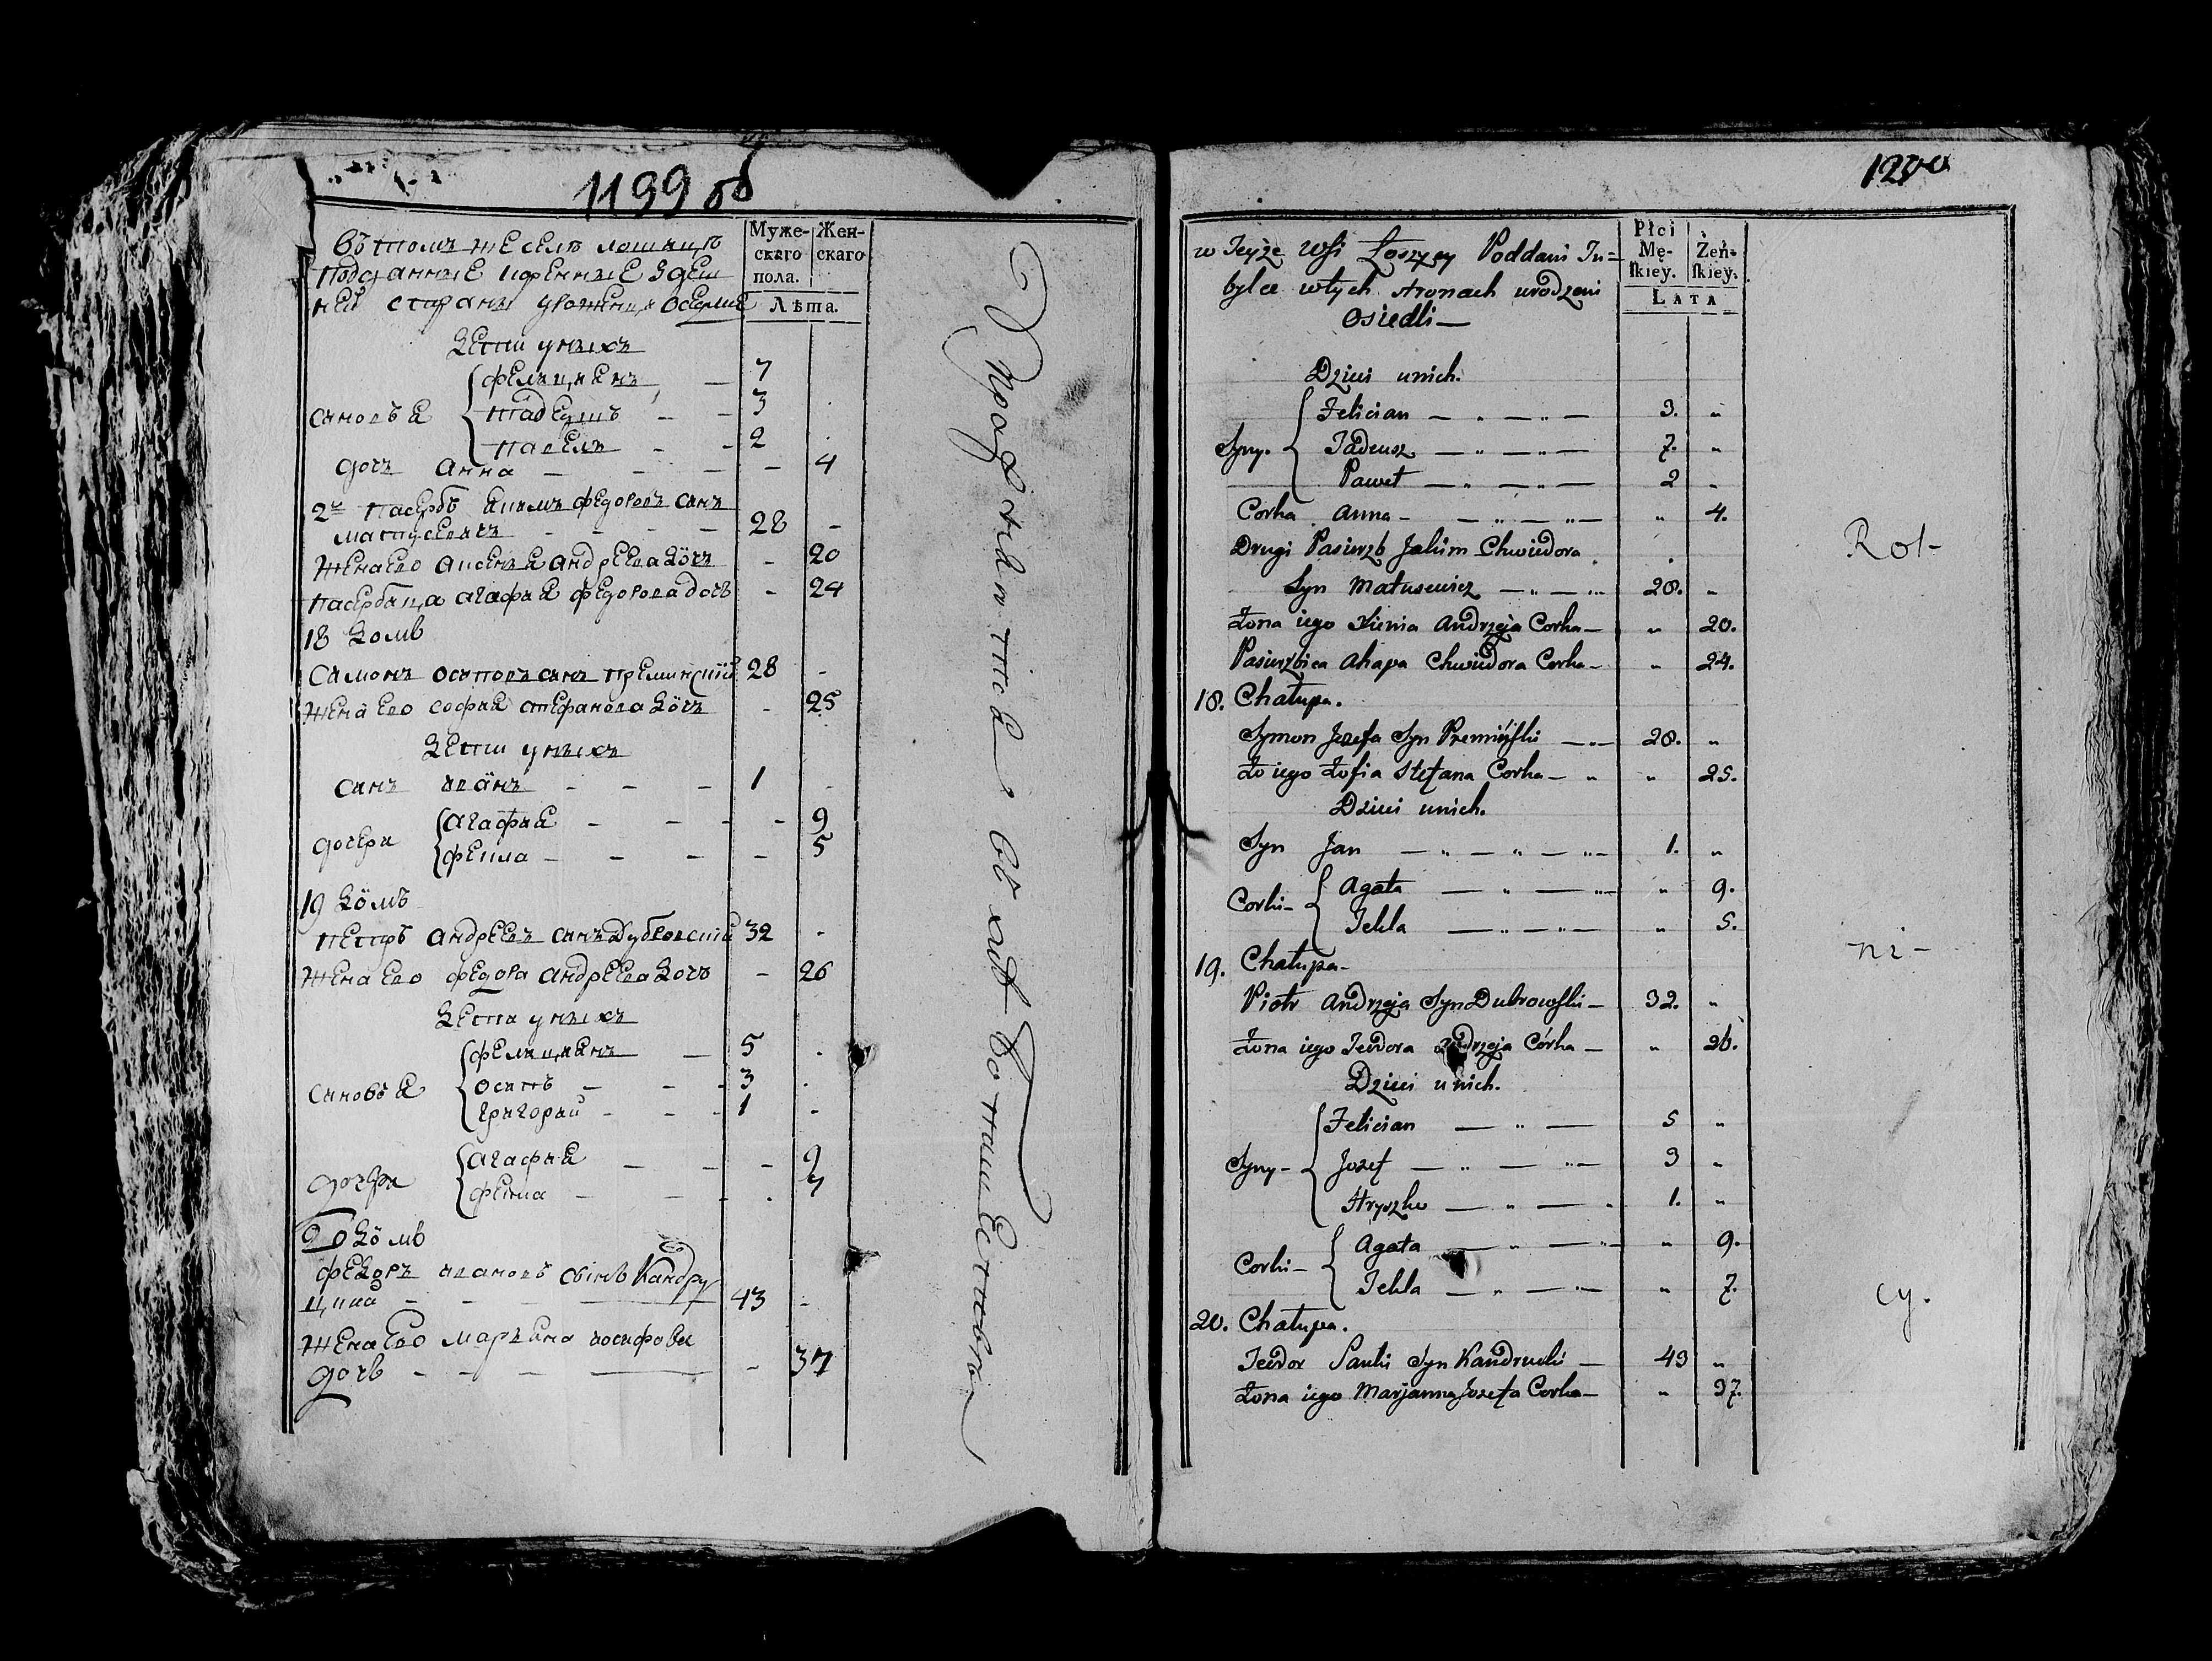 1199 об
Муже-
скаго
пола.
Жен-
скаго
Лѣта.
въ томъ же селѣ лошицѣ
подданные коренные здеш
ней стораны уроженцы оселые
Дети у ныхъ
сыновъя
фелициянъ — 7
тадеушъ - - 3 .
павелъ - - 2 .
дочъ анна - - - - 4
2й пасербъ акимъ федоровъ сынъ
матусевичъ - - - 28 -
жена ево аксенья андреева дочъ - 20
пасербица агафия федорова дочъ - 24
18 Домъ
самонъ осиповъ сынъ преминский 28 -
жена ево софия стефанова дочъ - 25
Дети у ныхъ
сынъ иванъ - - - 1 -
дочери
агафия - - - - 9
фекла - - - - 5
19 Домъ
петръ андреевъ сынъ Дубровский 32 -
жена ево федора андреева дочъ - 26
Дети у ныхъ
сыновъя
фелициянъ — 5 .
осипъ - - - 3 .
григорий - - - 1 -
дочери
агафия - - - 9
фекла - - - . 7
20 Домъ
федоръ ивановъ сынъ Кандру
цкий - - - 43 -
жена ево марьяна иосифова
дочь - - - - 37
1200
w Teyże Wsi Łoszycy Poddani In=
bylce wtych stronach urodzeni
Osiedli —
Płci
Mę-
skiey.
Żeń-
skiey.
LATA
Dzieci unich.
Syny.
Felician — „ — „ — 3. „
Tadeusz — „ — „ — 7. „
Paweł — „ — „ — 2 „
Corka Anna - — „ — „ — „ 4.
Drugi Pasierzb Jakim Chwiedora
Syn Matusewicz — „ — „ 28. „
Żona iego Xienia Andrzeja Corka — „ 20.
Pasierzbica Ahapa Chwiedora Corka — „ 24.
18. Chałupa.
Symon Jozefa Syn Premiński — „ 28. „
Żo iego Zofia Stefana Corka — „ „ 25.
Dzieci unich.
Syn Jan — „ — „ — „ 1. „
Corki —
Agata — „ — „ „ 9.
Tekla — „ — „ — „ 5.
19. Chałupa —
Piotr Andrzeja Syn Dubrowski — 32. „
Żona iego Teodora Andrzeja Córka — „ 26.
Dzieci unich.
Syny —
Felician — „ — 5 „
Jozef — „ — „ — 3 „
Hryszko — „ — „ 1. „
Corki —
Agata — „ — „ „ 9.
Tekla — „ — „ — „ 7.
20. Chałupa.
Teodor Jan syn Kandrucki — 43 „
Żona iego Maryanna Jozefa Corka — „ 37.
Rot-
ni-
cy.